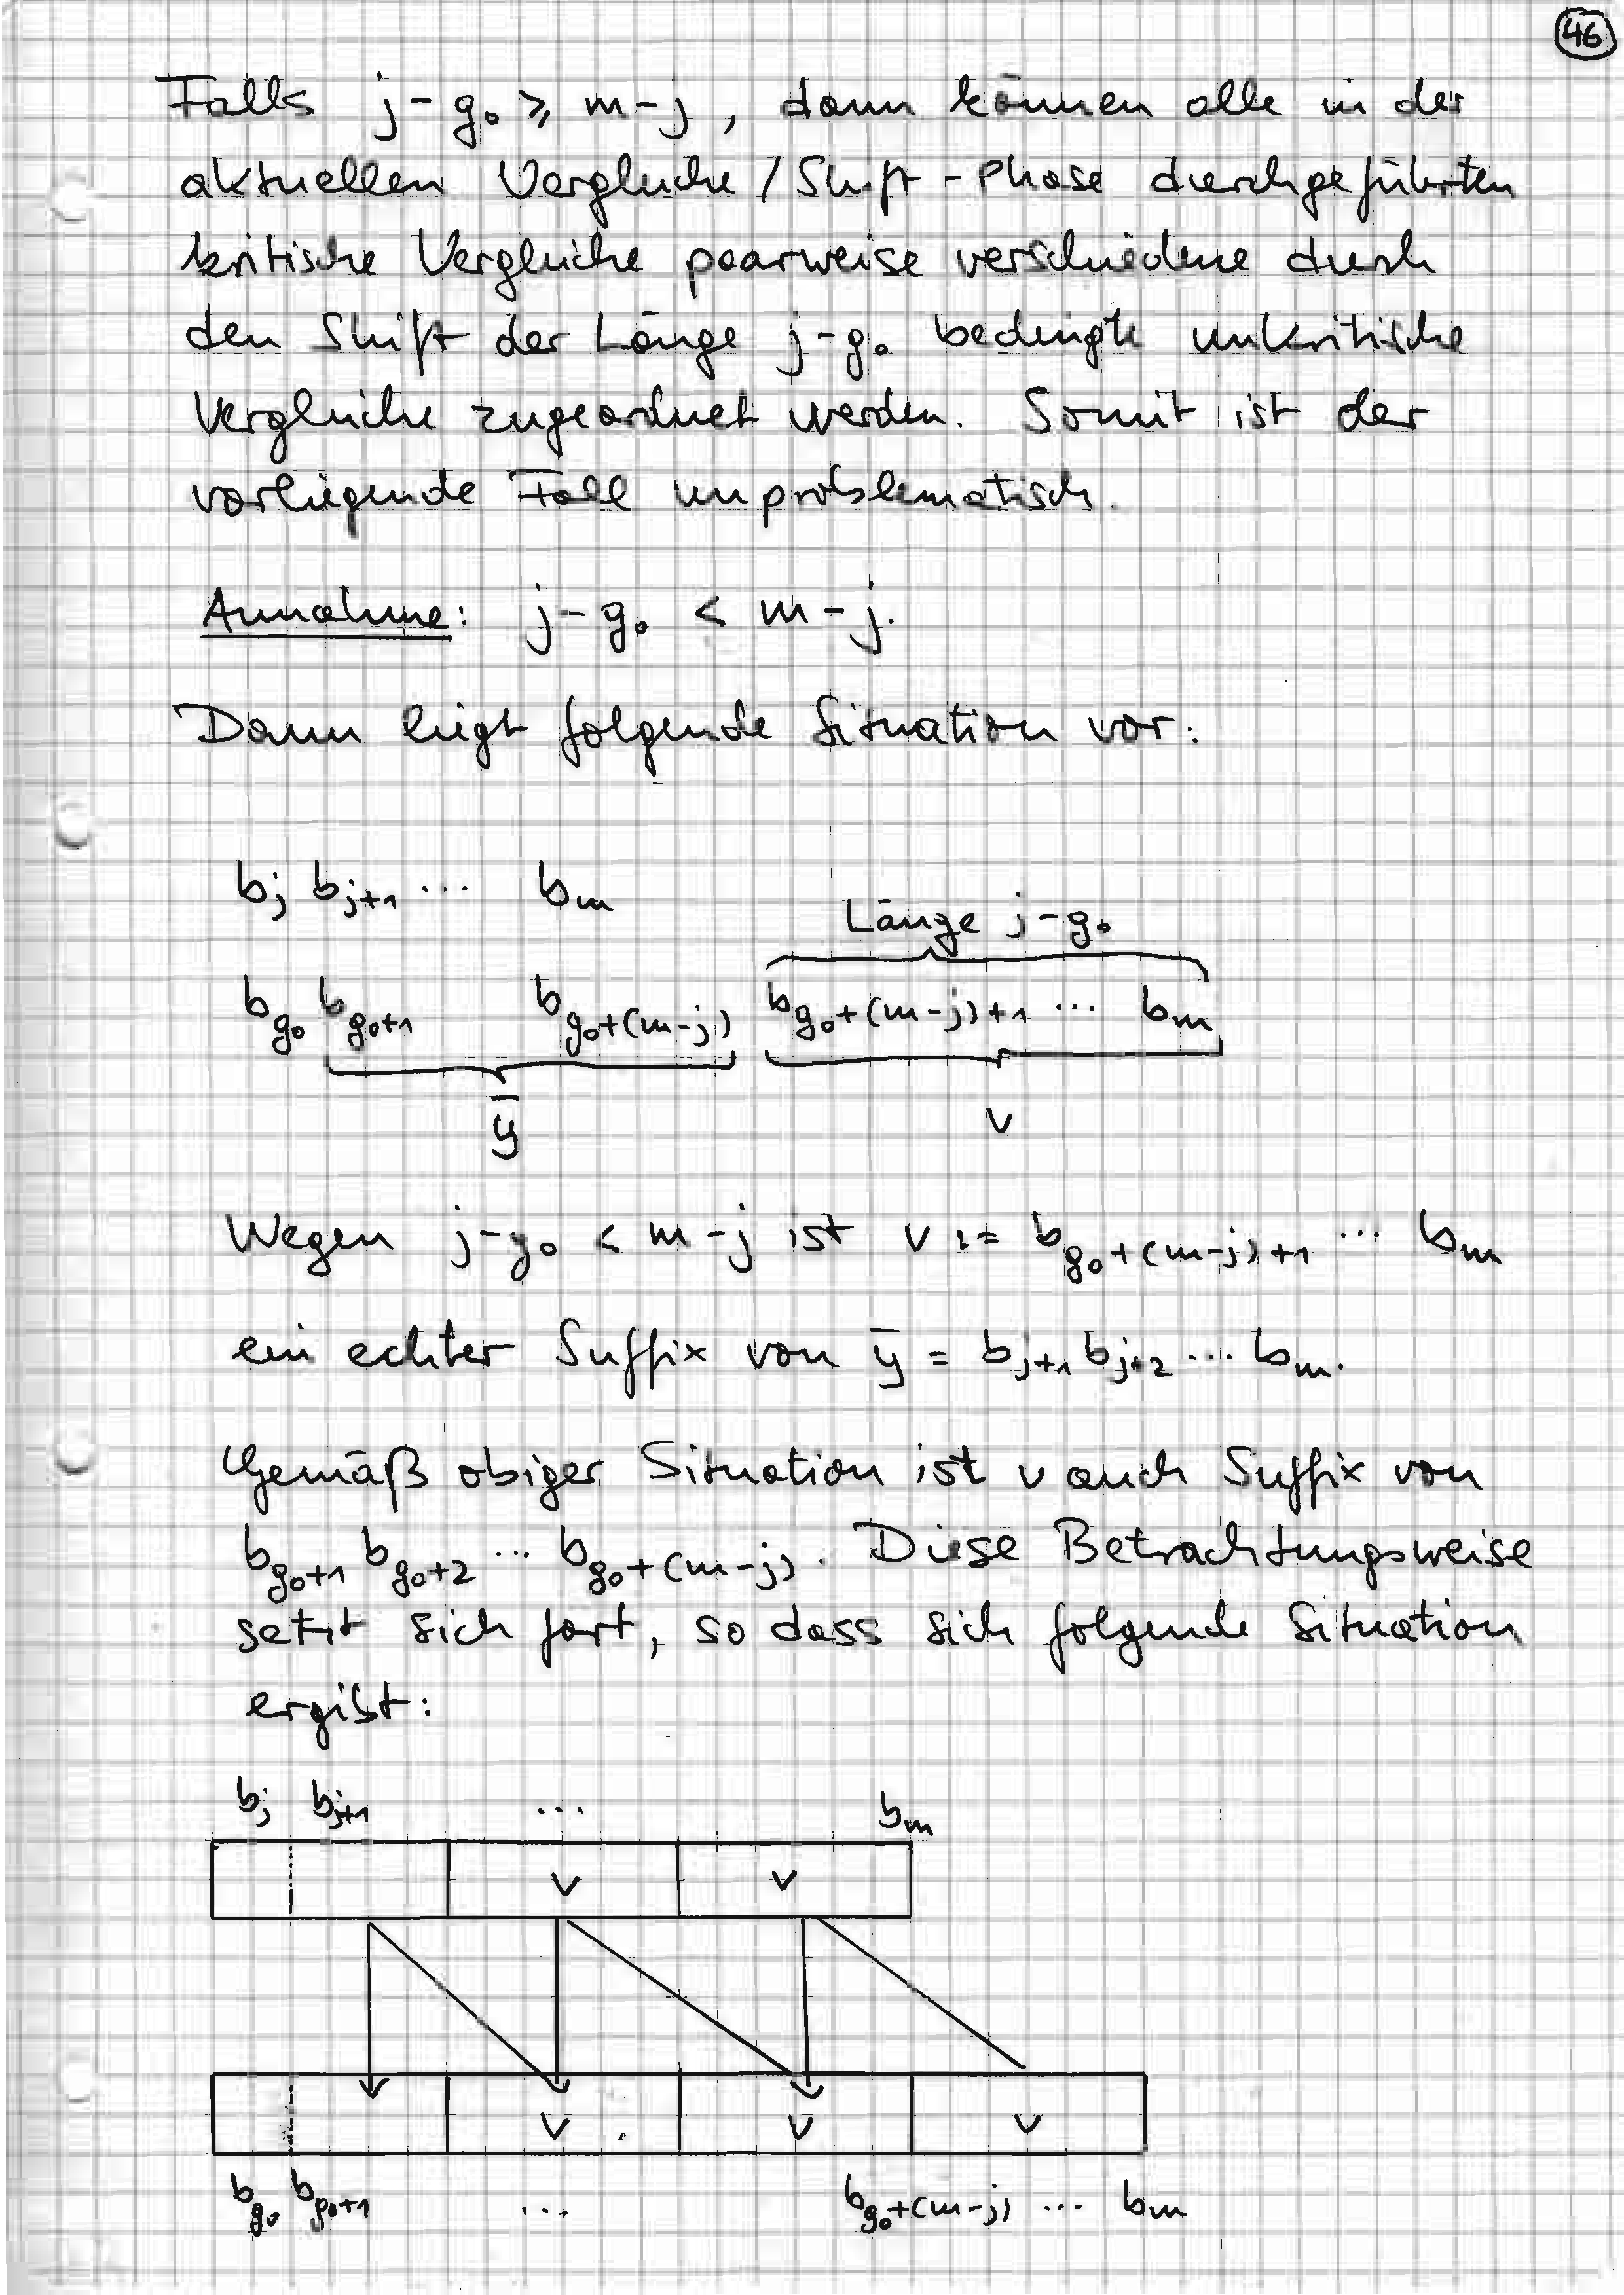 46
Falls j-g₀ ≥ m-j, dann können alle in der
aktuellen Vergleiche/Shift-Phase durchgeführten
kritische Vergleiche paarweise verschiedene durch
den Shift der Länge j-g₀ bedingte unkritische
Vergleiche zugeordnet werden. Somit ist der
vorliegende Fall unproblematisch.
Annahme: j-g₀ < m-j.
Dann liegt folgende Situation vor:
b_j b_{j+1} ... b_m
Länge j-g₀
b_{g₀} b_{g₀+1} b_{g₀+(m-j)} b_{g₀+(m-j)+1} ... b_m
ȳ v
Wegen j-g₀ < m-j ist v := b_{g₀+(m-j)+1} ... b_m
ein echter Suffix von ȳ = b_{j+1} b_{j+2} ... b_m.
Gemäß obiger Situation ist v auch Suffix von
b_{g₀+1} b_{g₀+2} ... b_{g₀+(m-j)}. Diese Betrachtungsweise
setzt sich fort, so dass sich folgende Situation
ergibt:
b_j b_{j+1} ... b_m
v v
v v v
b_{g₀} b_{g₀+1} ... b_{g₀+(m-j)} ... b_m